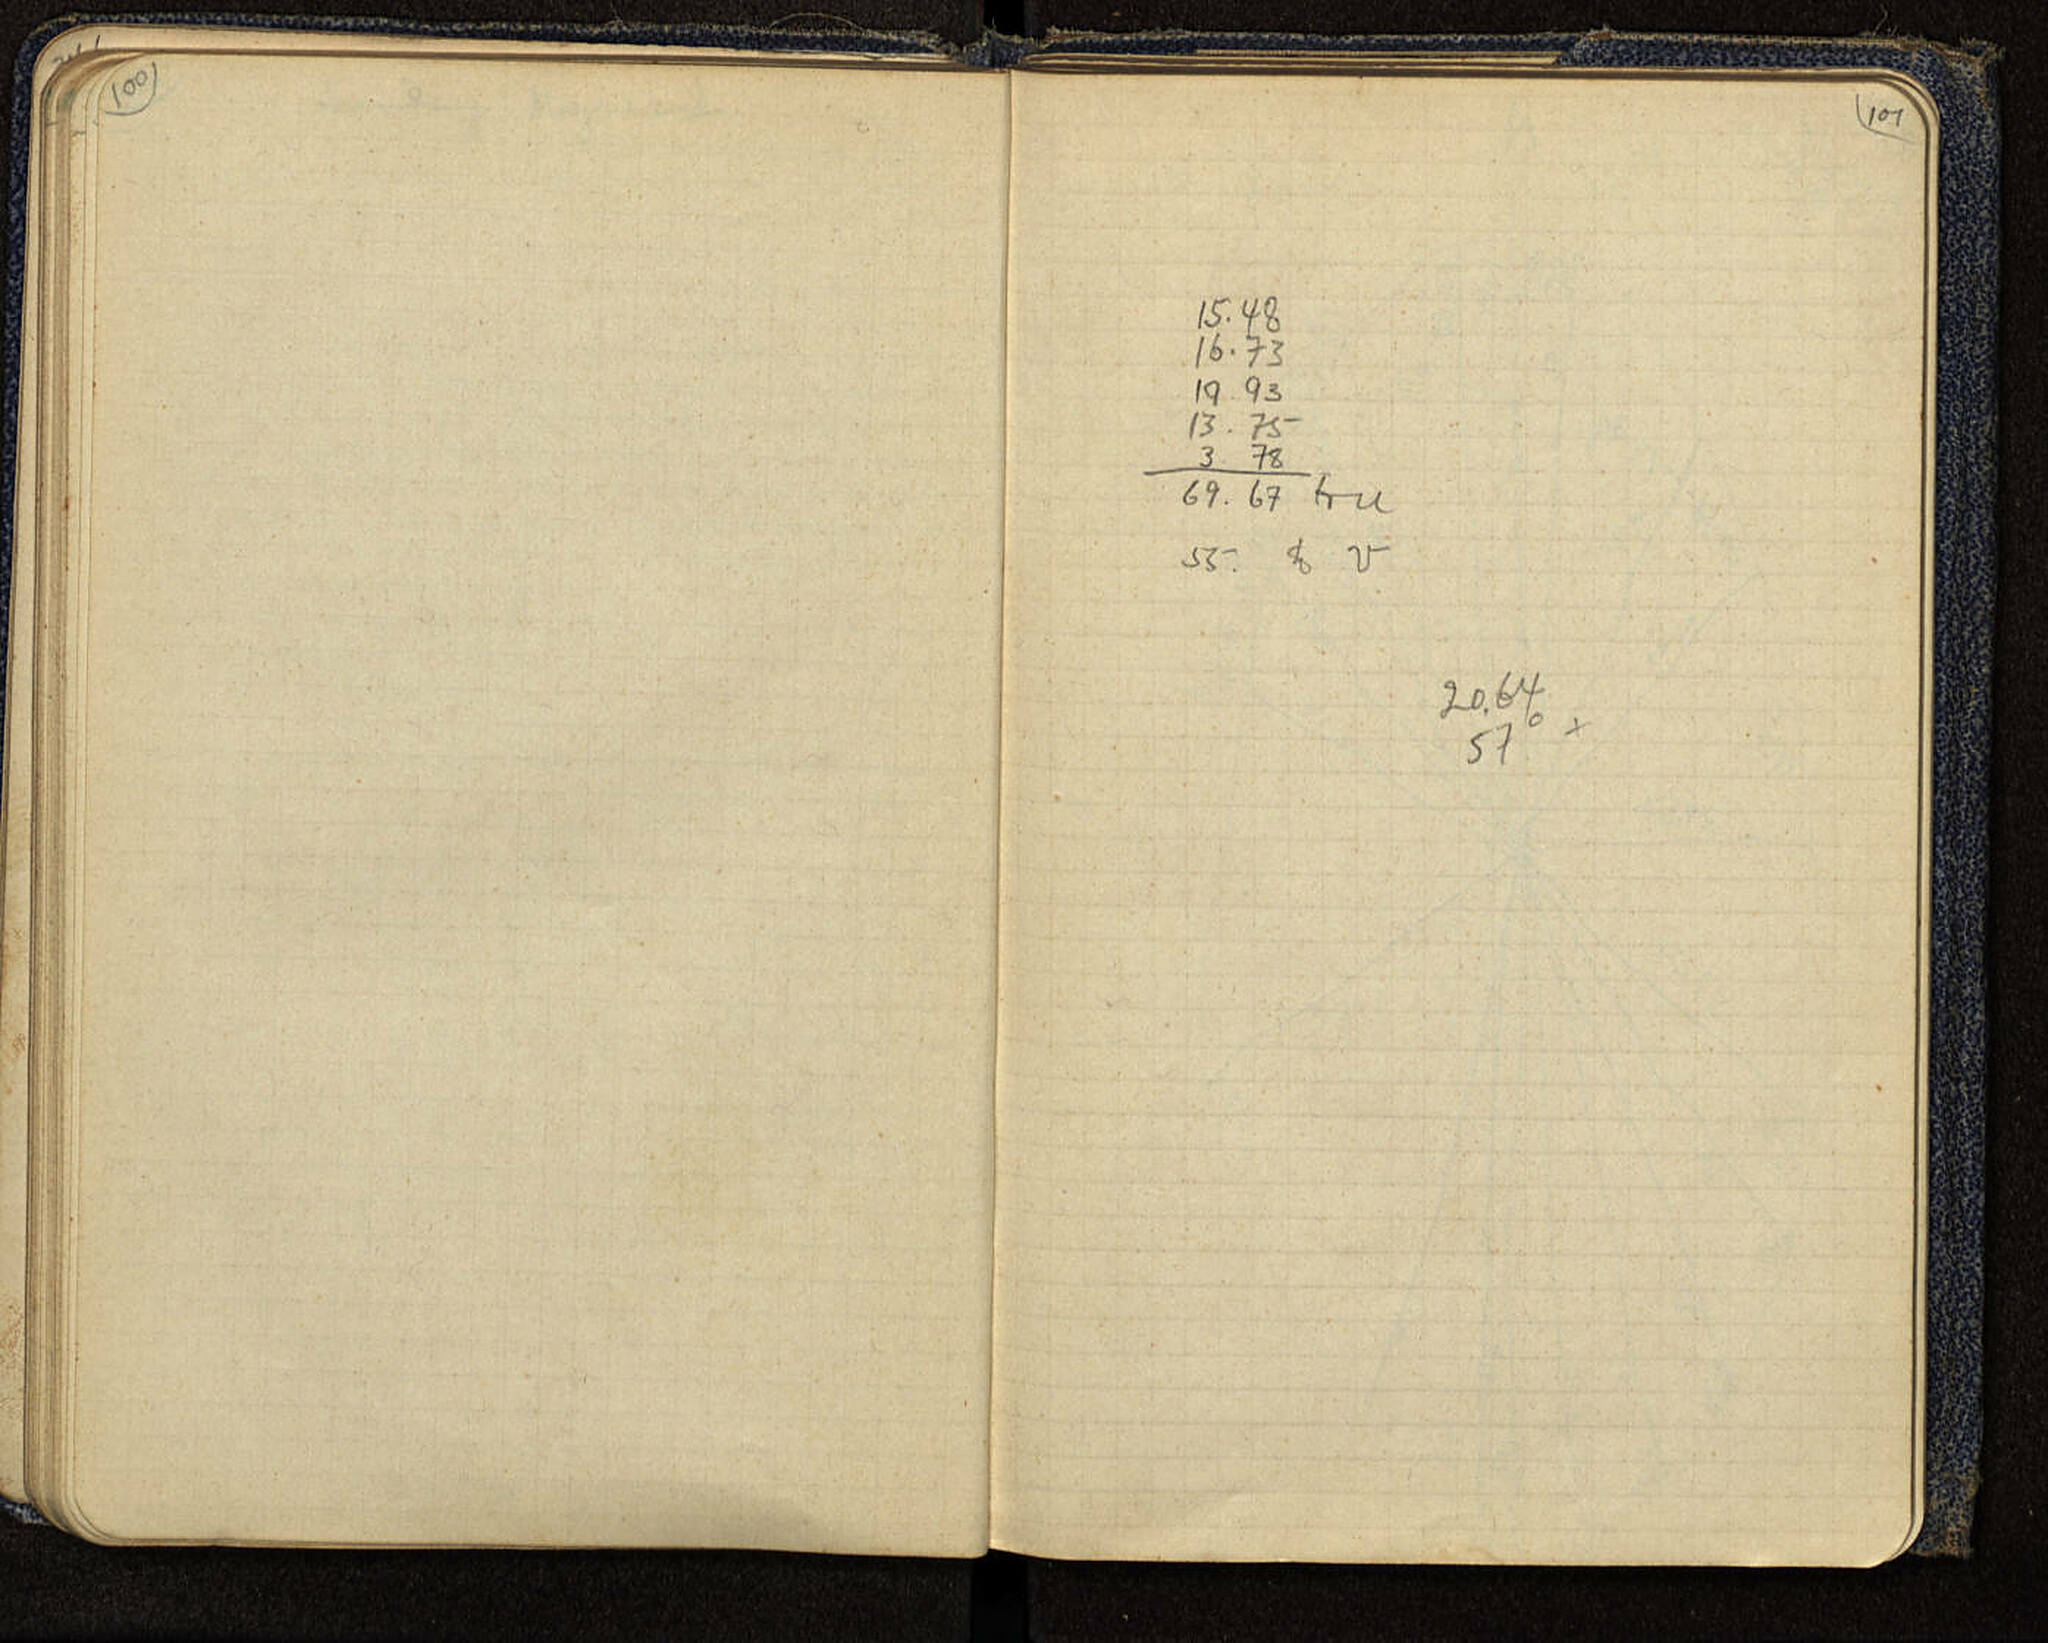 100
101
15.48
16.73
19.93
13.75
3.78
69.67
55.
20.64
57°